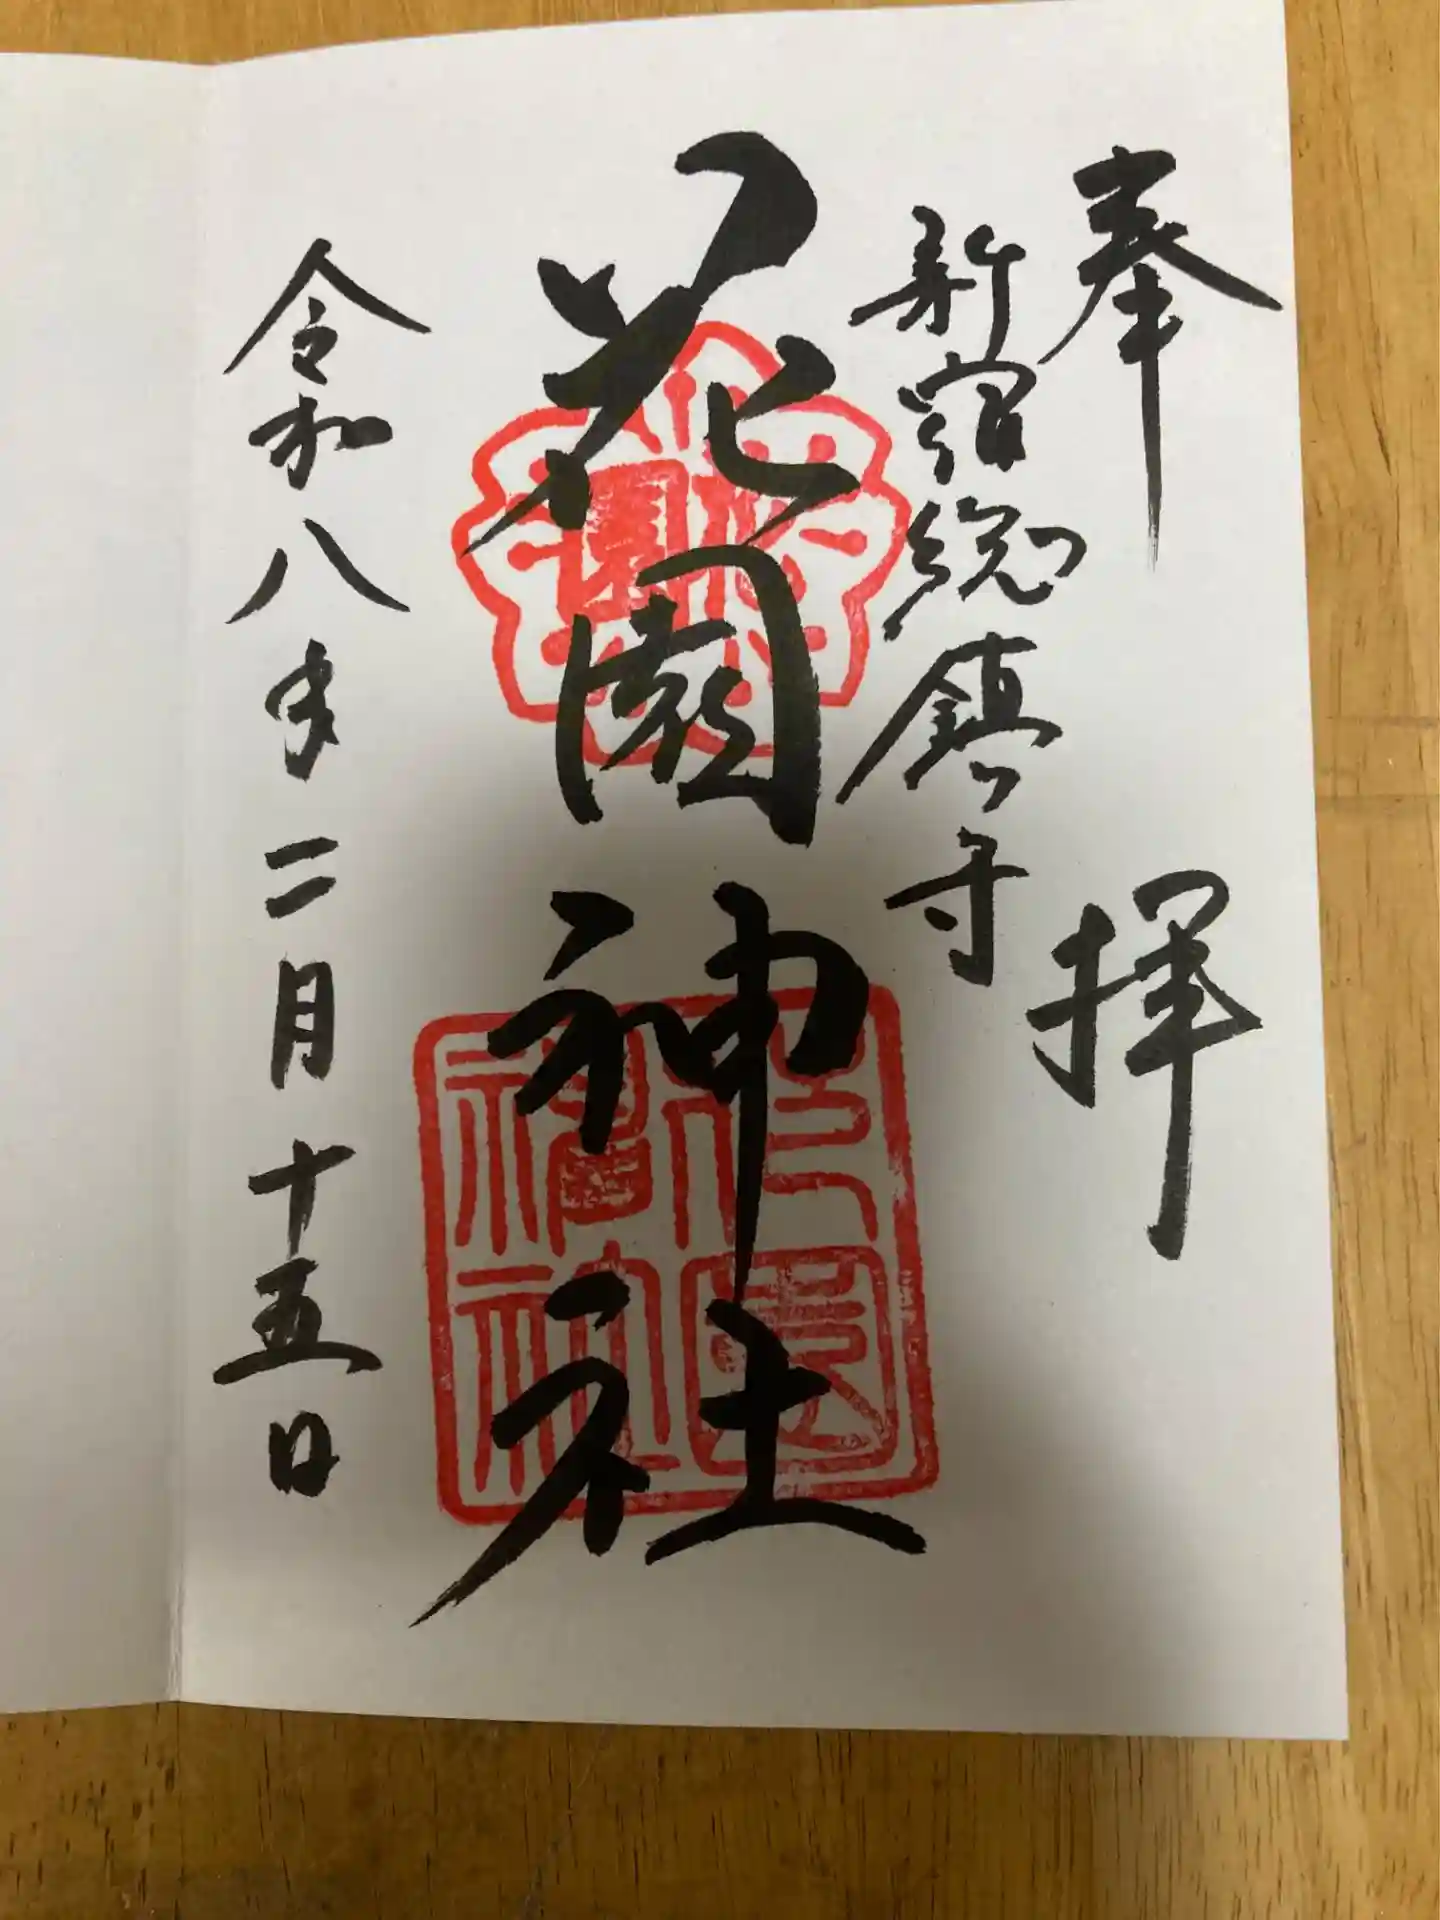 奉拝
新宿総鎮守
花園神社
令和八年二月十五日
花園
花園神社